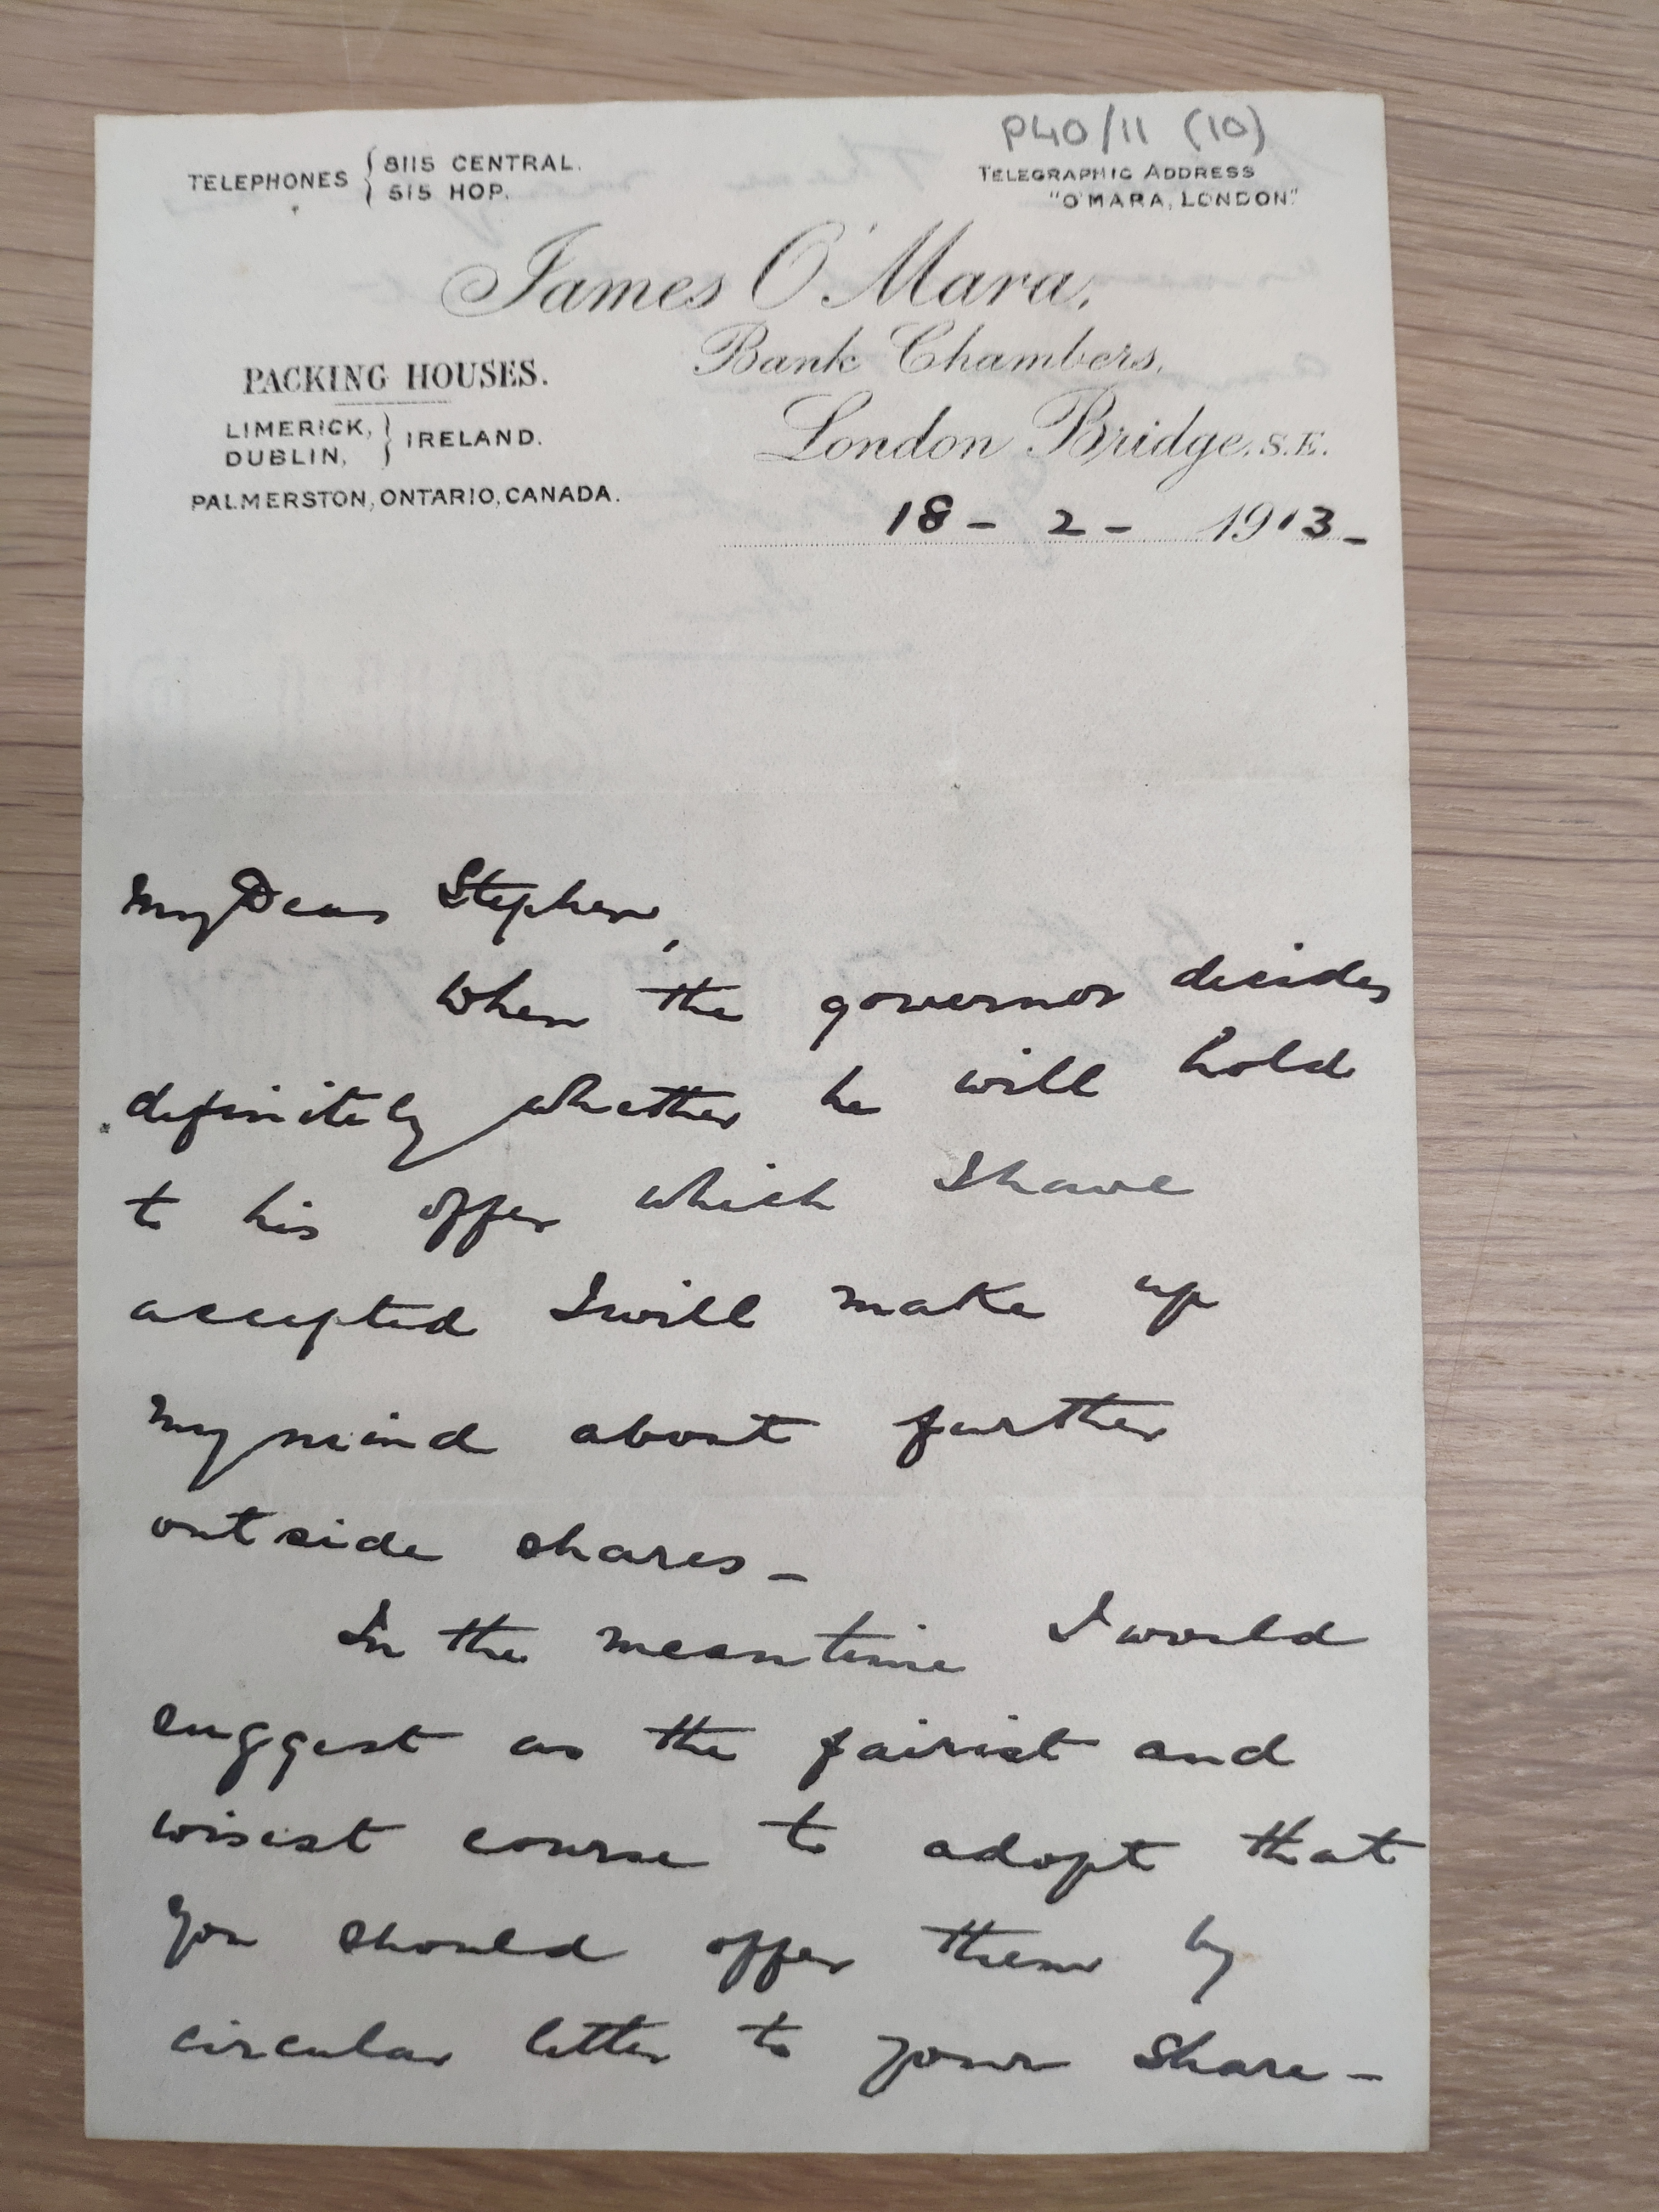 P40/11 (10)
TELEPHONES { 8115 CENTRAL.
515 HOP.
TELEGRAPHIC ADDRESS
"O'MARA, LONDON."
James O'Mara,
Bank Chambers,
London Bridge, S.E.
PACKING HOUSES.
LIMERICK, } IRELAND.
DUBLIN,
PALMERSTON, ONTARIO, CANADA.
18 - 2 - 1913 -
My Dear Stephen,
When the governor decides
definitely whether he will hold
to his offer which I have
accepted I will make up
my mind about further
outside shares -
In the meantime I would
suggest as the fairist and
wisest course to adopt that
you should offer them by
circular letter to your share -